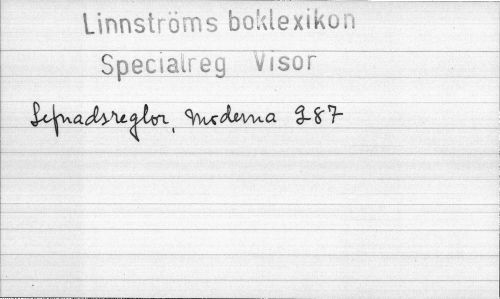 Linnströms boklexikon
Specialreg Visor
Lefnadsreglor, Moderna 287